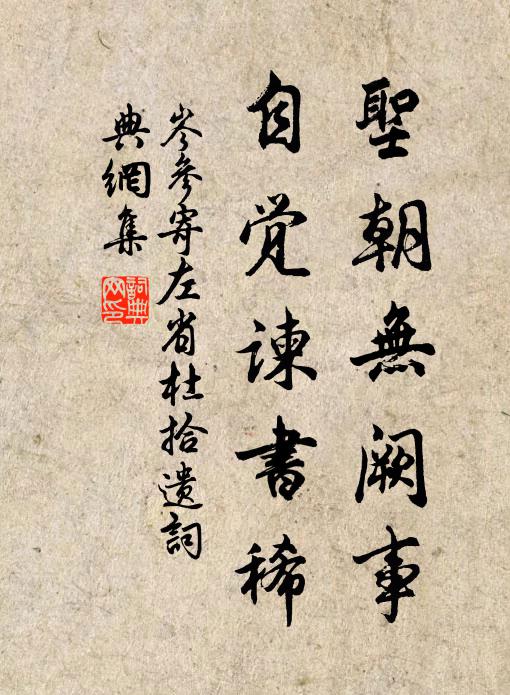 聖朝無闕事
自覚諫書稀
岑參寄左省杜拾遺詞
典網集
詞典
网印